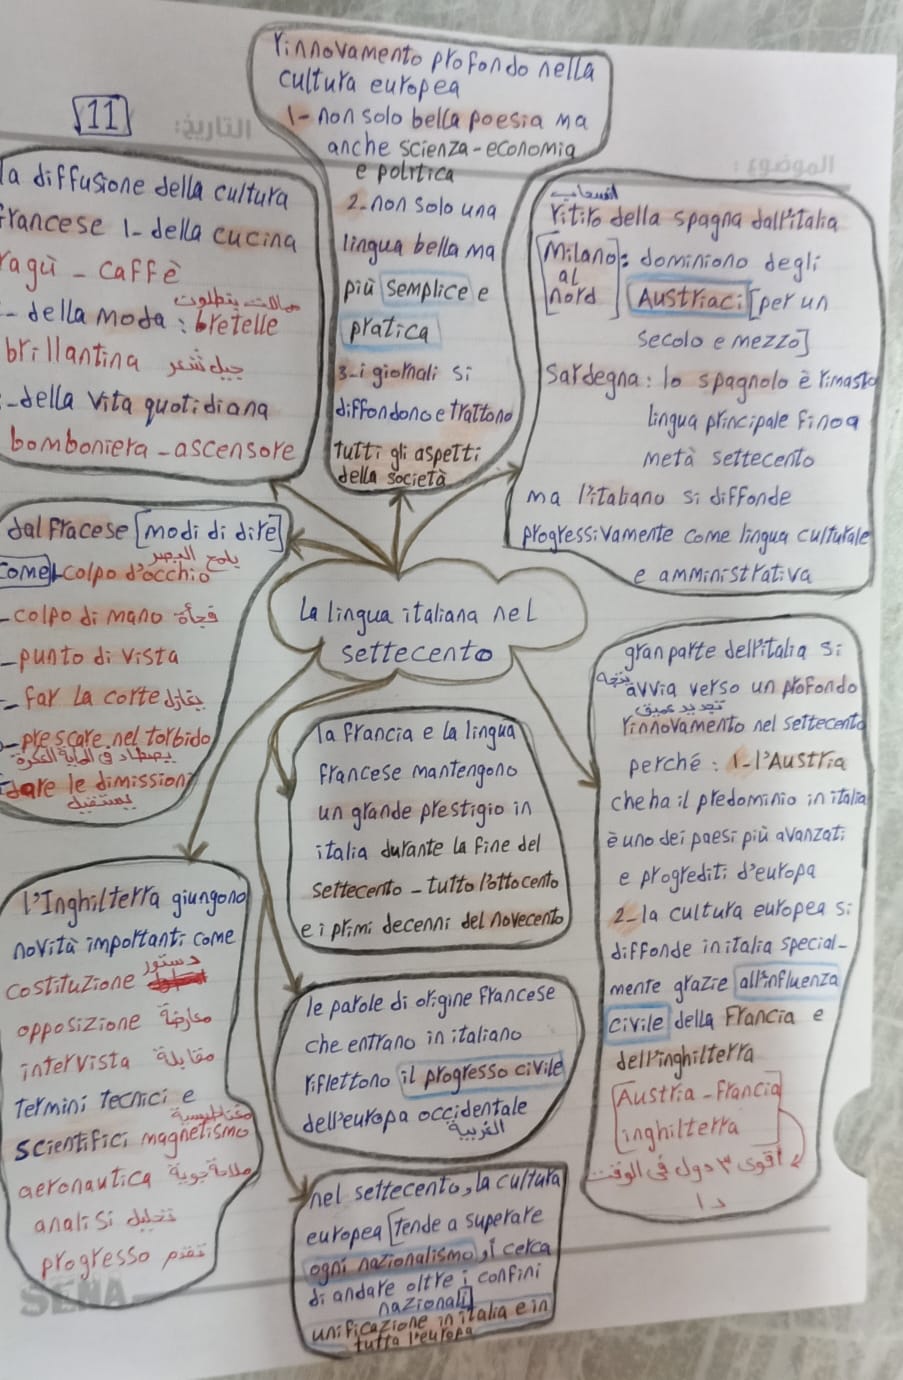 11
التاريخ:
الموضوع:
rinnovamento profondo nella
cultura europea
1- non solo bella poesia ma
anche scienza - economia
e politica
2- non solo una
lingua bella ma
più semplice e
pratica
3- i giornali si
diffondono e trattono
tutti gli aspetti
della società
la diffusione della cultura
francese 1- della cucina
ragù - caffè
- della moda : bretelle
حمالات بنطلون
brillantina جيل شعر
- della vita quotidiana
bomboniera - ascensore
انسحاب
ritiro della spagna dall'italia
[Milano]: dominiono degli
al
[nord] Austriaci [per un
secolo e mezzo]
Sardegna: lo spagnolo è rimasto
lingua principale fino a
metà settecento
ma l'italiano si diffonde
progressivamente come lingua culturale
e amministrativa
dal fracese [modi di dire]
come - colpo d'occhio
بلمح البصر
- colpo di mano فجأة
- punto di vista
- far la corte يغازل
- prescare nel torbido
يصطاد في الماية العكرة
dare le dimissioni
يستقيل
La lingua italiana nel
settecento
gran parte dell'italia si
يتجه
avvia verso un profondo
تجديد عميق
rinnovamento nel settecento
perché : 1- l'Austria
che ha il predominio in italia
è uno dei paesi più avanzati
e progrediti d'europa
2- la cultura europea si
diffonde in italia special-
mente grazie all'influenza
civile della Francia e
dell'inghilterra
[Austria - Francia
inghilterra]
اقوى ٣ دول في الوقت
دا
la francia e la lingua
francese mantengono
un grande prestigio in
italia durante la fine del
settecento - tutto l'ottocento
e i primi decenni del novecento
l'Inghilterra giungono
novità importanti come
costituzione دستور
opposizione معارضة
intervista مقابلة
termini tecnici e
مغناطيسية
scientifici magnetismo
aeronautica ملاحة جوية
analisi تحليل
progresso تقدم
le parole di origine francese
che entrano in italiano
riflettono il progresso civile
dell'europa occidentale
الغربية
nel settecento, la cultura
europea [tende a superare
ogni nazionalismo, i cerca
di andare oltre i confini
nazionali]
unificazione in italia e in
tutta l'europa
SENA